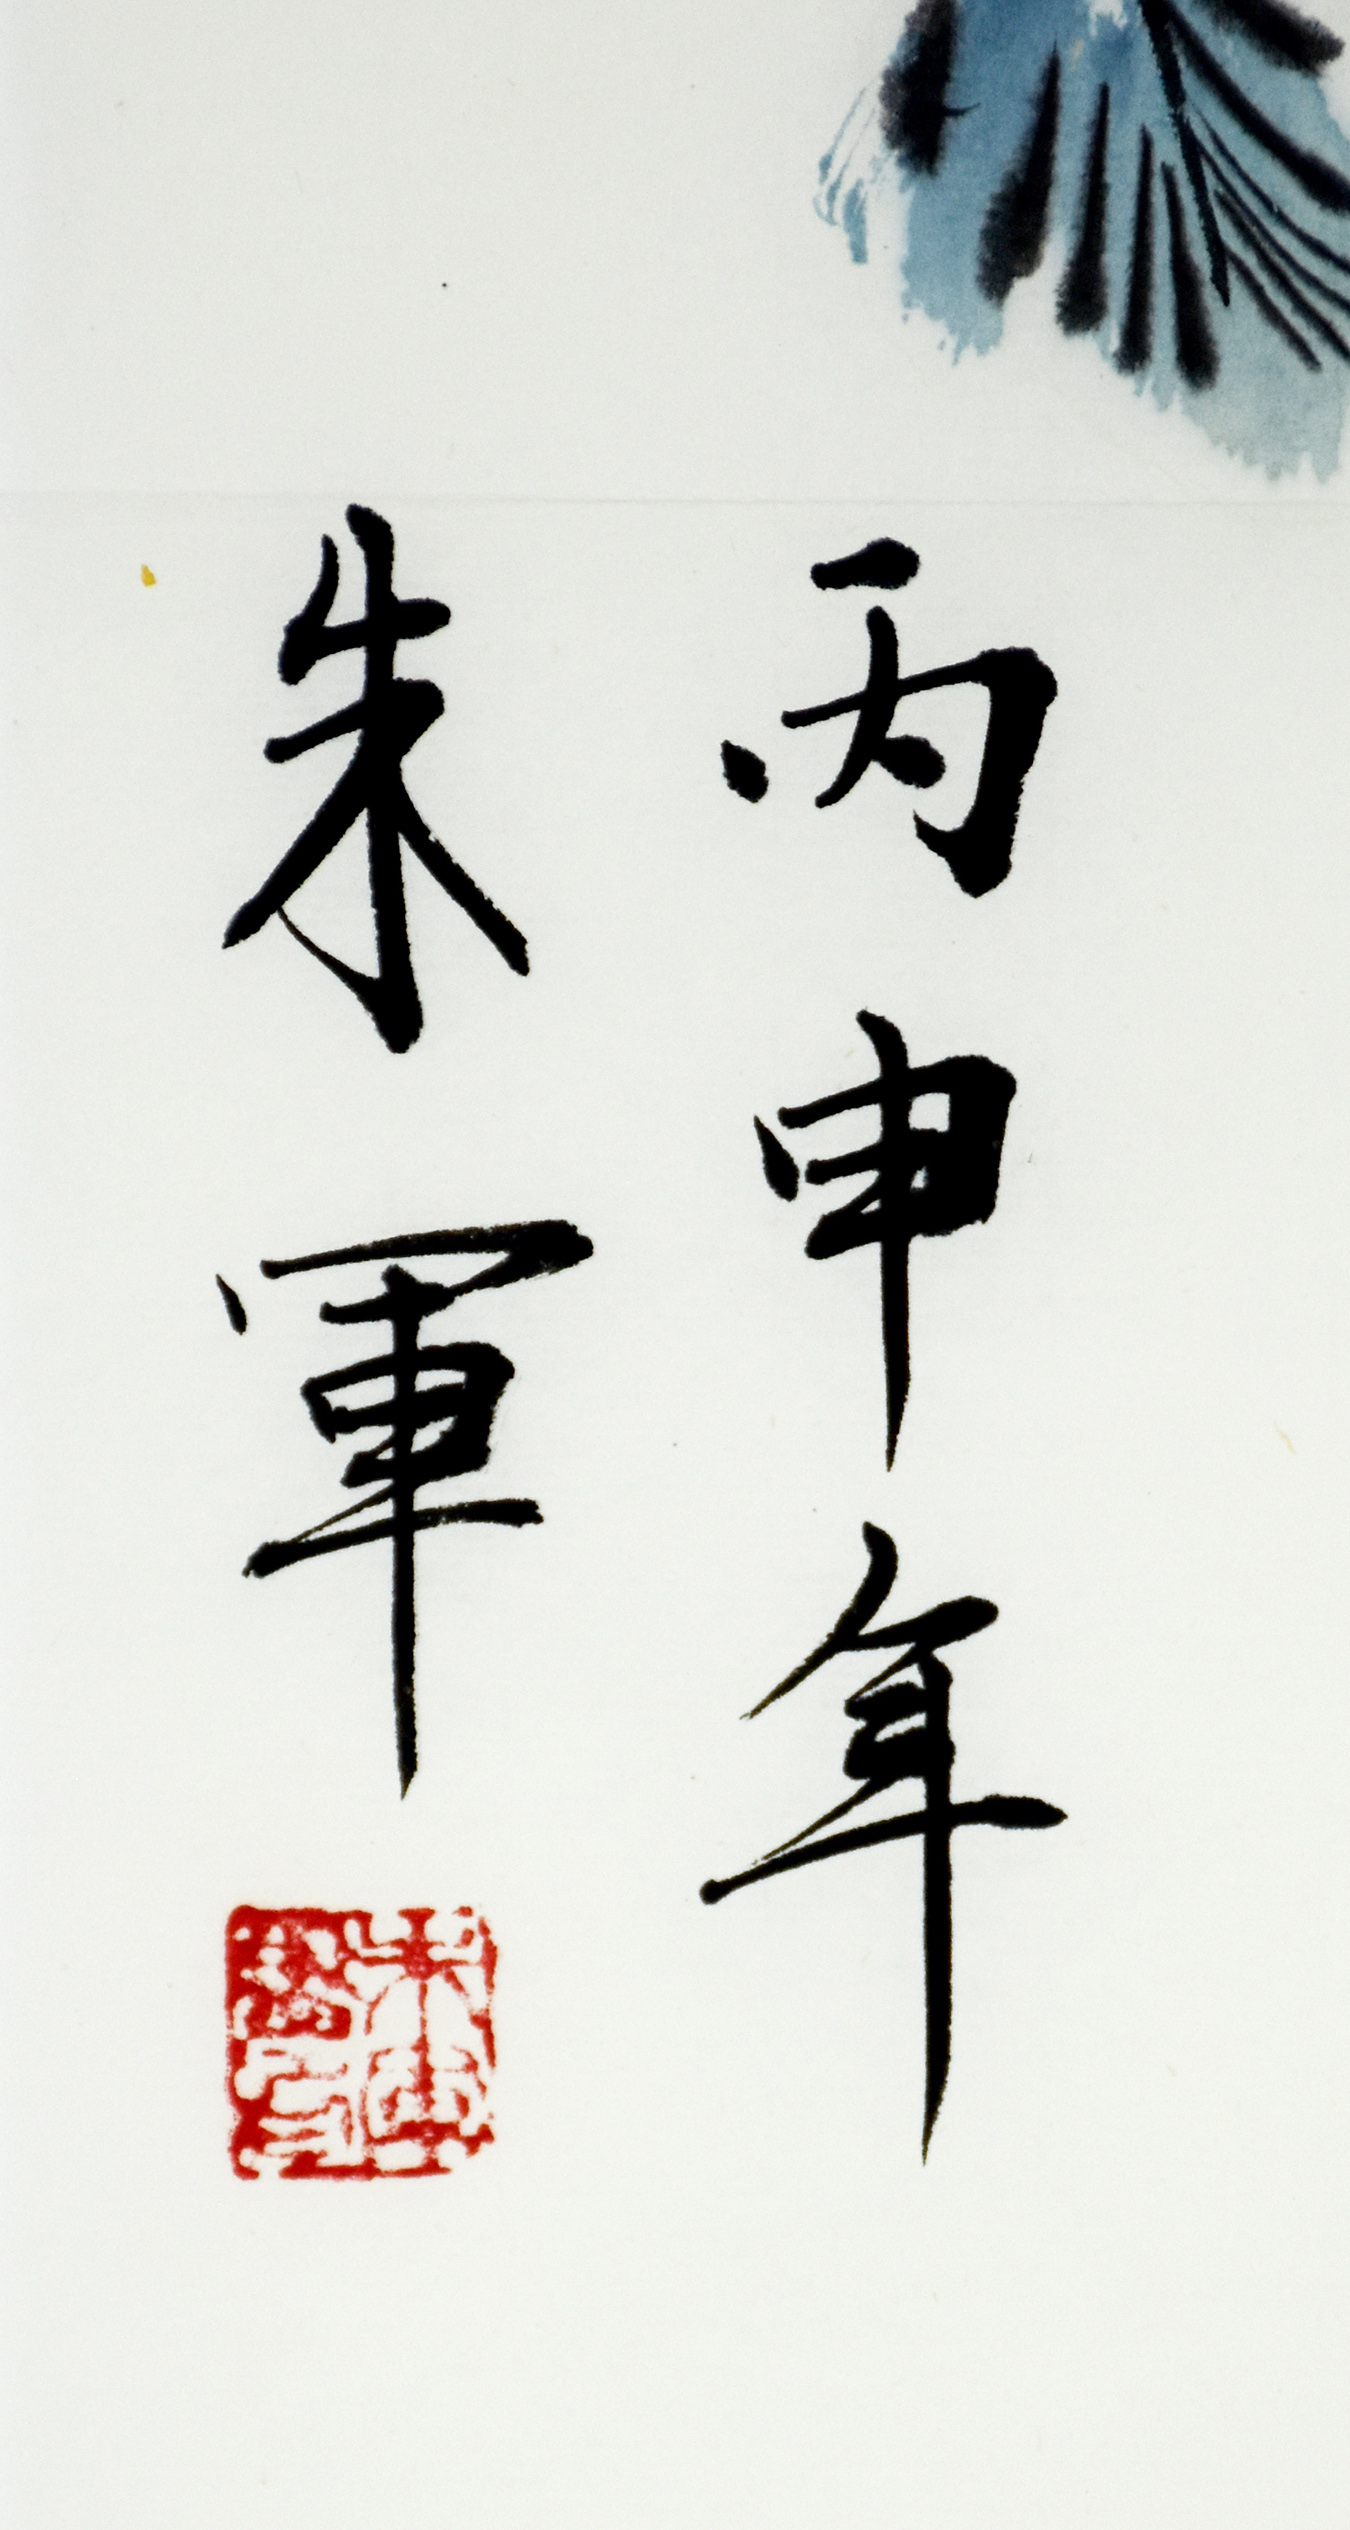 丙申年
朱軍